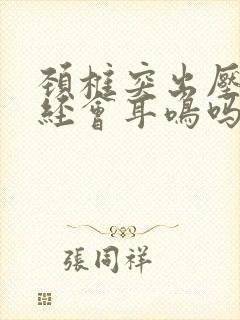 頸椎突出壓
經會耳鳴嗎
張同祥